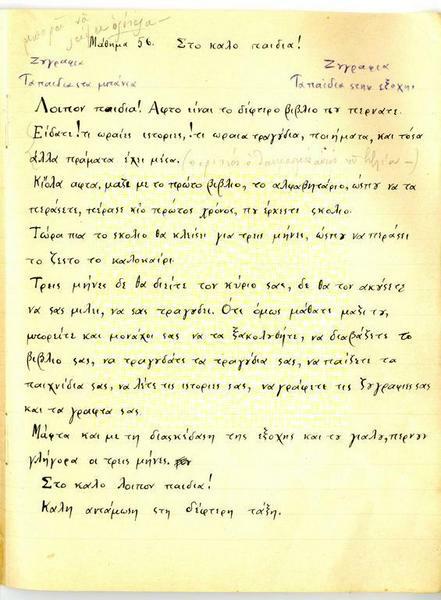 μπορεί να
Μάθημα 56. Στο καλο παιδια!
Ζυγραφια
Τα παιδια στα μπάνια
Ζυγραφια
Τα παιδια στην εξοχη.
Λοιπον παιδια! Αφτο είναι το δέφτερο βιβλιο που περνατε.
Είδατε! τι ωραίες ιστοριες,! τι ωραια τραγύδια, ποιήματα, και τόσα
άλλα πράματα έχι μέσα.
Κι όλα αφτα, μαζι με το πρώτο βιβλιο, το αλφαβητάριο, ώσπυ να τα
περάσετε, πέρασε κι ο πρώτος χρόνος, πυ έρχεστε σκολιο.
Τώρα πια το σκολιο θα κλείσει για τρεις μήνες, ώσπυ να περάσει
το ζεστο το καλοκαίρι.
Τρεις μήνες δε θα διείτε τον κύριο σας, δε θα τον ακύσετε
να σας μιλει, να σας τραγυδει. Οτι όμως μάθατε μαζι τυ,
μπορείτε και μονάχοι σας να τα ξακολυθήτε, να διαβάζετε το
βιβλιο σας, να τραγυδάτε τα τραγύδια σας, να παίζετε τα
παιχνίδια σας, να λέτε τις ιστοριες σας, να γράφετε τις ζυγραφιες σας
και τα γραφτα σας.
Μάφτα και με τη διασκέδαση της εξοχης και τυ γιαλυ, περνυν
γλήγορα οι τρεις μήνες.
Στο καλο λοιπον παιδια!
Καλη αντάμωση στη δέφτερη τάξη.